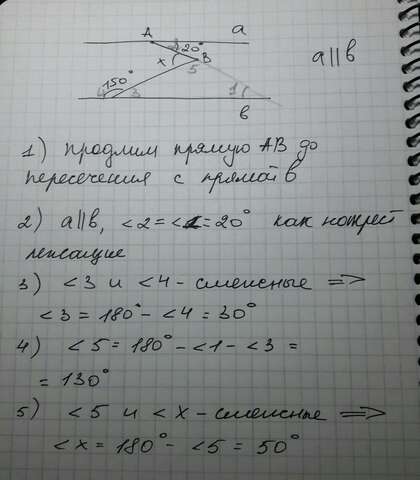 A a
2 20°
x B
5
150°
4 3 1
b
a || b
1) Продлим прямую АВ до
пересечения с прямой b
2) a || b, <2 = <1 = 20° как накрест
лежащие
3) <3 и <4 - смежные =>
<3 = 180° - <4 = 30°
4) <5 = 180° - <1 - <3 =
= 130°
5) <5 и <x - смежные =>
<x = 180° - <5 = 50°